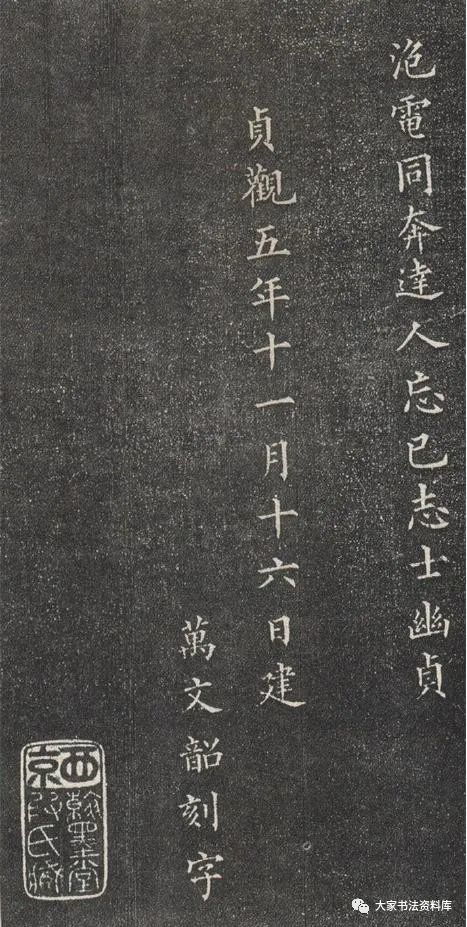 泡電同奔達人忘己志士幽貞
貞觀五年十一月十六日建
萬文韶刻字
西京
翰墨堂
氏藏
大家书法资料库